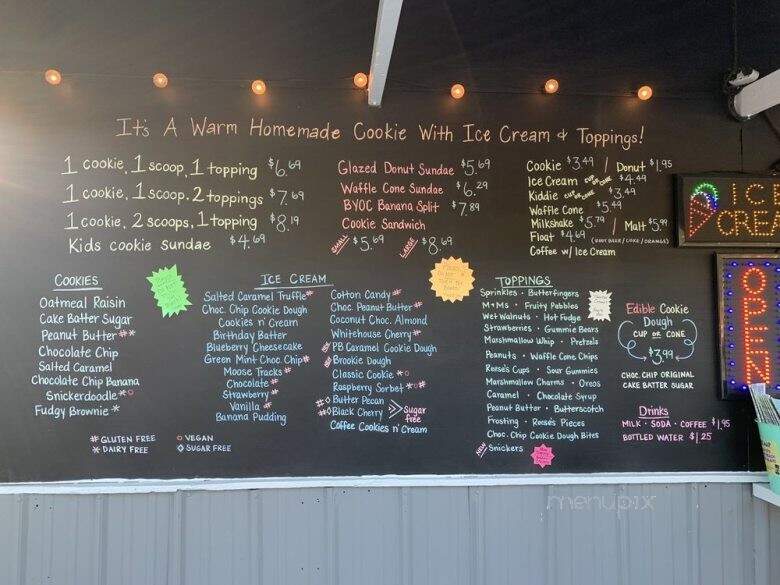 It's A Warm Homemade Cookie With Ice Cream & Toppings!
1 cookie, 1 scoop, 1 topping $6.69
1 cookie, 1 scoop, 2 toppings $7.69
1 cookie, 2 scoops, 1 topping $8.19
Kids cookie sundae $4.69
Glazed Donut Sundae $5.69
Waffle Cone Sundae $6.29
BYOC Banana Split $7.89
Cookie Sandwich
SMALL $5.69 LARGE $8.69
Cookie $3.49 / Donut $1.95
Ice Cream CUP OR CONE $4.49
Kiddie CUP OR CONE $3.49
Waffle Cone $5.49
Milkshake $5.79 / Malt $5.99
Float $4.69 (ROOT BEER/COKE/ORANGE)
Coffee w/ Ice Cream
ICE
CREA
OPEN
COOKIES
Oatmeal Raisin
Cake Batter Sugar
Peanut Butter #*
Chocolate Chip
Salted Caramel
Chocolate Chip Banana
Snickerdoodle *○
Fudgy Brownie *
# GLUTEN FREE ○ VEGAN
* DAIRY FREE ◇ SUGAR FREE
ICE CREAM
Salted Caramel Truffle #
Choc. Chip Cookie Dough
Cookies n' Cream
Birthday Batter
Blueberry Cheesecake
Green Mint Choc. Chip #
Moose Tracks #
Chocolate #
Strawberry #
Vanilla #
Banana Pudding
Cotton Candy #
Choc. Peanut Butter #
Coconut Choc. Almond
Whitehouse Cherry #
# PB Caramel Cookie Dough
# Brookie Dough
Classic Cookie *○
Raspberry Sorbet *○#
#◇ Butter Pecan
#◇ Black Cherry > Sugar free
Coffee Cookies n' Cream
TOPPINGS
Sprinkles · Butterfingers
M+Ms · Fruity Pebbles
Wet Walnuts · Hot Fudge
Strawberries · Gummie Bears
Marshmallow Whip · Pretzels
Peanuts · Waffle Cone Chips
Reese's Cups · Sour Gummies
Marshmallow Charms · Oreos
Caramel · Chocolate Syrup
Peanut Butter · Butterscotch
Frosting · Reese's Pieces
Choc. Chip Cookie Dough Bites
NEW Snickers
Edible Cookie
Dough
CUP OR CONE
$3.99
CHOC. CHIP ORIGINAL
CAKE BATTER SUGAR
Drinks
MILK · SODA · COFFEE $1.95
BOTTLED WATER $1.25
menupix